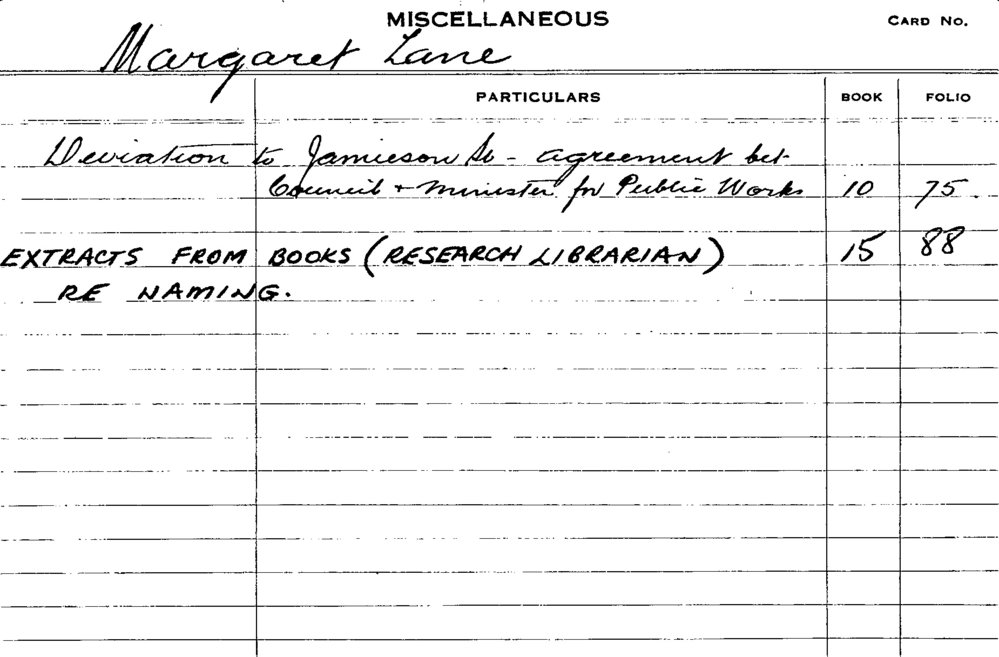 MISCELLANEOUS CARD NO.
Margaret Lane
PARTICULARS BOOK FOLIO
Deviation to Jamieson St - agreement bet-
Council + Minister for Public Works 10 75
EXTRACTS FROM BOOKS (RESEARCH LIBRARIAN) 15 88
RE NAMING.